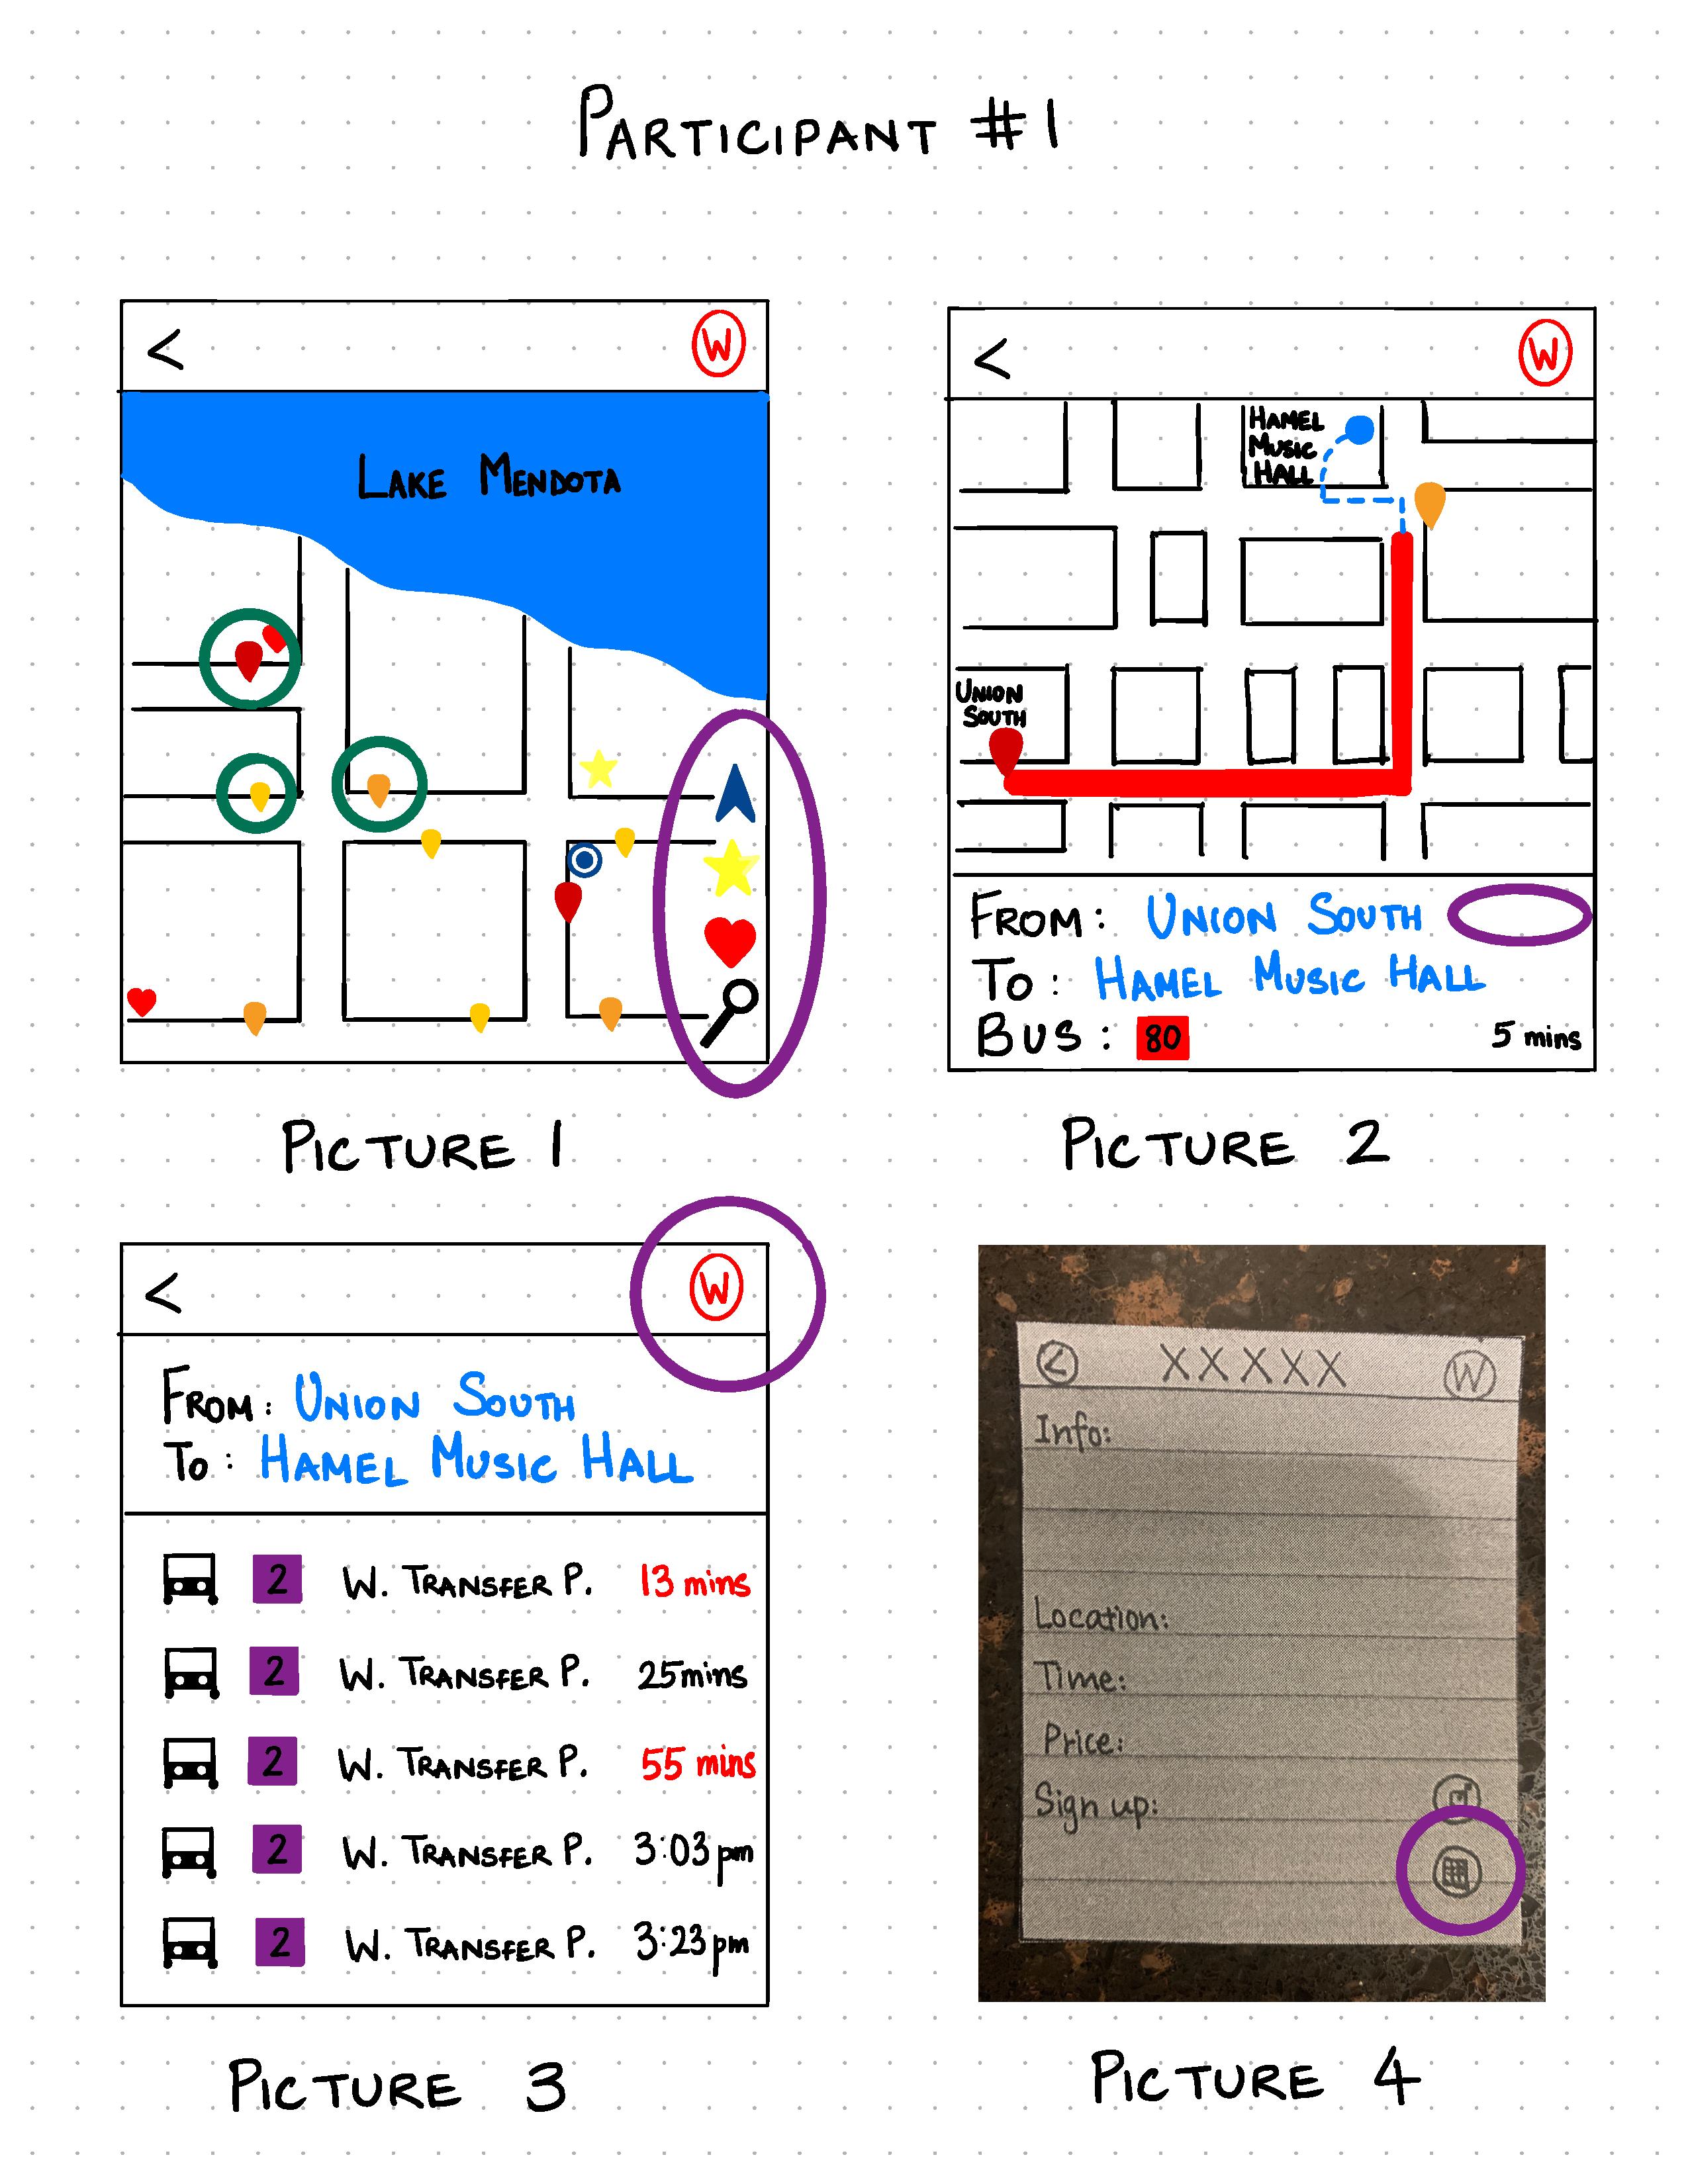 PARTICIPANT #1
<
W
LAKE MENDOTA
PICTURE 1
<
W
HAMEL
MUSIC
HALL
UNION
SOUTH
FROM: UNION SOUTH
TO: HAMEL MUSIC HALL
BUS: 80 5 mins
PICTURE 2
<
W
FROM: UNION SOUTH
TO: HAMEL MUSIC HALL
2 W. TRANSFER P. 13 mins
2 W. TRANSFER P. 25mins
2 W. TRANSFER P. 55 mins
2 W. TRANSFER P. 3:03 pm
2 W. TRANSFER P. 3:23 pm
PICTURE 3
< XXXXX W
Info:
Location:
Time:
Price:
Sign up:
PICTURE 4